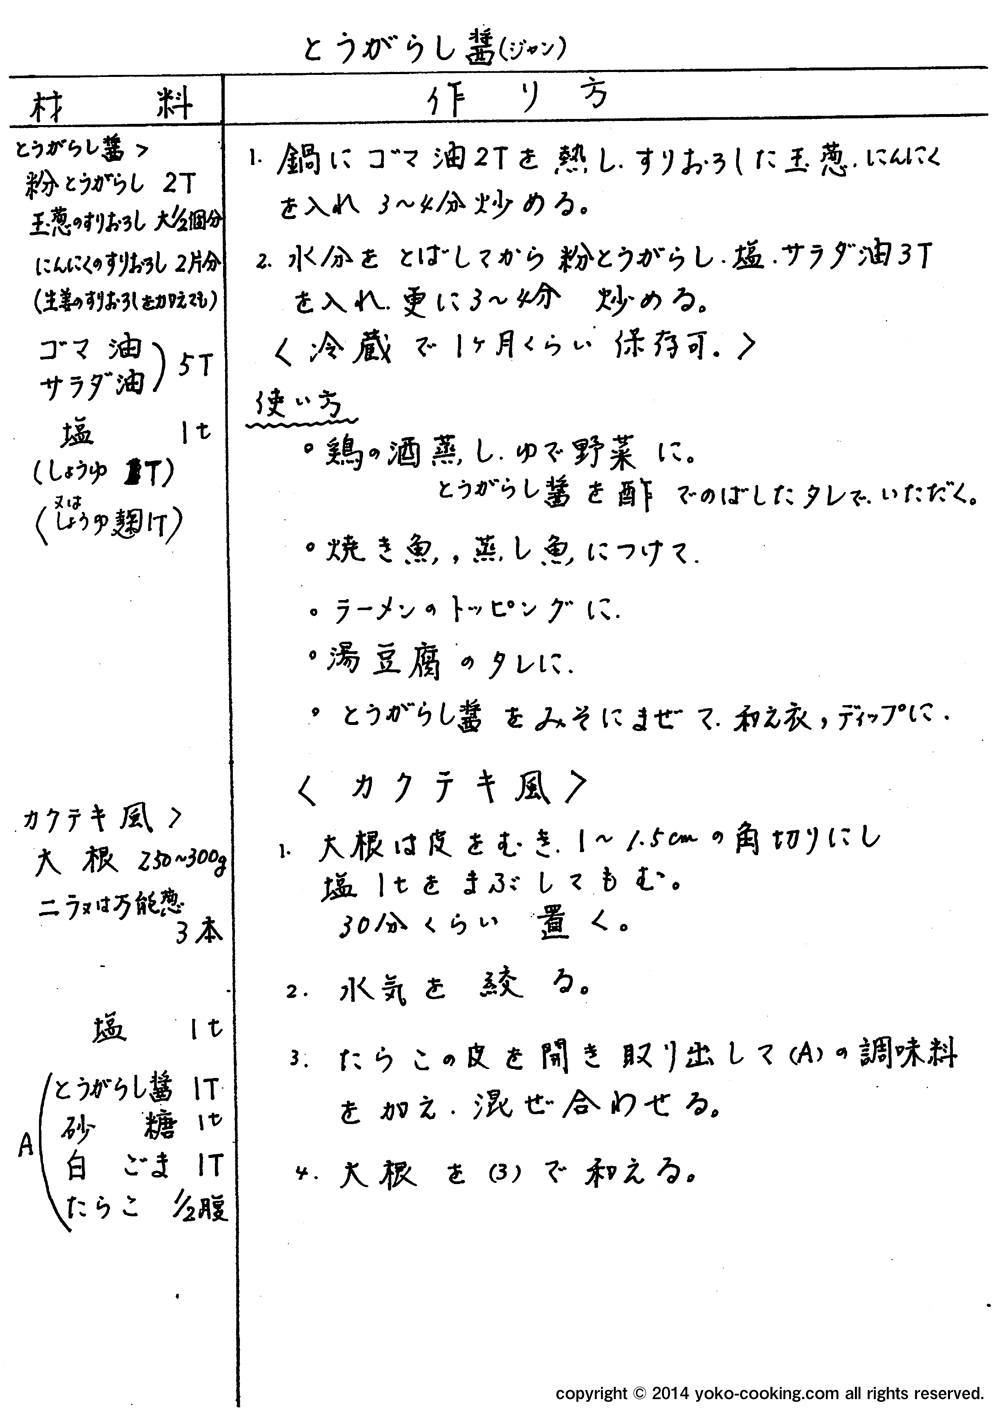 とうがらし醤(ジャン)
材　料
作り方
とうがらし醤>
粉とうがらし 2T
玉葱のすりおろし 大1/2個分
にんにくのすりおろし 2片分
(生姜のすりおろしを加えても)
ゴマ油
サラダ油) 5T
塩 1t
(しょうゆ 1T)
又は
(しょうゆ麹1T)
1. 鍋にゴマ油2Tを熱し.すりおろした玉葱.にんにく
を入れ 3〜4分炒める。
2. 水分をとばしてから粉とうがらし.塩.サラダ油3T
を入れ.更に3〜4分 炒める。
<冷蔵で1ヶ月くらい保存可.>
使い方
◦鶏の酒蒸し.ゆで野菜に。
とうがらし醤を酢でのばしたタレで.いただく。
◦焼き魚,蒸し魚につけて.
◦ラーメンのトッピングに.
◦湯豆腐のタレに.
◦とうがらし醤をみそにまぜて.和え衣,ディップに.
カクテキ風>
大根 250〜300g
ニラ又は万能葱
3本
塩 1t
A
とうがらし醤 1T
砂糖 1t
白ごま 1T
たらこ 1/2腹
<カクテキ風>
1. 大根は皮をむき.1〜1.5cmの角切りにし
塩1tをまぶしてもむ。
30分くらい置く。
2. 水気を絞る。
3. たらこの皮を開き取り出して(A)の調味料
を加え.混ぜ合わせる。
4. 大根を(3)で和える。
copyright © 2014 yoko-cooking.com all rights reserved.